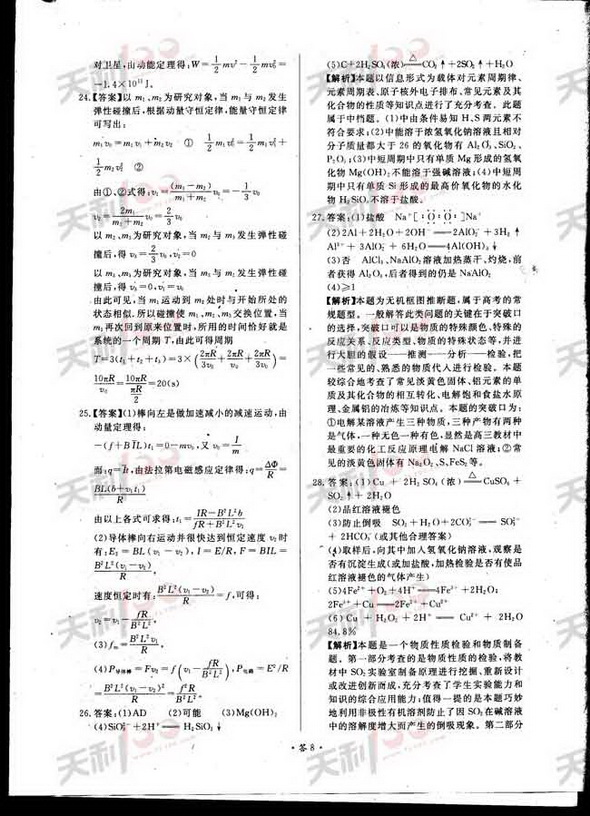 对卫星,由动能定理得:W=1/2 mv²-1/2 mv₀²=
-1.4×10¹¹J。
24.【答案】以 m₁、m₂ 为研究对象,当 m₁ 与 m₂ 发生
弹性碰撞后,根据动量守恒定律,能量守恒定律
可写出:
m₁v₀=m₁v₁+m₂v₂ ① 1/2 m₁v₀²=1/2 m₁v₁²+
1/2 m₂v₂² ②
由①、②式得:v₁=(m₁-m₂)/(m₁+m₂) v₀=-1/3 v₀
v₂=2m₁/(m₁+m₂) v₀=2/3 v₀
以 m₂、m₃ 为研究对象,当 m₂ 与 m₃ 发生弹性碰
撞后,得 v₃=2/3 v₀,v₂=0
以 m₃、m₁ 为研究对象,当 m₃ 与 m₁ 发生弹性碰
撞后,得 v₃=0,v₁=v₀
由此可见,当 m₁ 运动到 m₂ 处时与开始所处的
状态相似.所以碰撞使 m₁、m₂、m₃ 交换位置,当
m₁ 再次回到原来位置时,所用的时间恰好就是
系统的一个周期 T,由此可得周期
T=3(t₁+t₂+t₃)=3×(2πR/3v₀+2πR/v₀+2πR/3v₀)=
10πR/v₀=10πR/(πR/2)=20(s)
25.【答案】(1)棒向左是做加速减小的减速运动,由
动量定理得:
-(f+BIL)t₁=0-mv₀,又 v₀=I/m
而:q=It,由法拉第电磁感应定律得:q=ΔΦ/R=
BL(b+v₁t₁)/R
由以上各式可求得:t₁=(IR-B²L²b)/(fR+B²L²v₁)
(2)导体棒向右运动并很快达到恒定速度 v₂时
有:E₂=BL(v₁-v₂),I=E/R,F=BIL=
B²L²(v₁-v₂)/R,
速度恒定时有:B²L²(v₁-v₂)/R=f,可得:
v₂=v₁-fR/B²L²。
(3)fₘ=B²L²v₁/R。
(4)P导体棒=Fv₂=f(v₁-fR/B²L²),P电路=E²/R
=B²L²(v₁-v₂)²/R=f²R/B²L²。
26.答案:(1)AD (2)可能 (3)Mg(OH)₂
(4)SiO₃²⁻+2H⁺══H₂SiO₃↓
(5)C+2H₂SO₄(浓)══△CO₂↑+2SO₂↑+H₂O
【解析】本题以信息形式为载体对元素周期律、
元素周期表、原子核外电子排布、常见元素及其
化合物的性质等知识点进行了充分考查。此题
属于中档题。(1)中由条件易知 H、S 两元素不
符合要求;(2)中能溶于浓氢氧化钠溶液且相对
分子质量都大于 26 的氧化物有 Al₂O₃、SiO₂、
P₂O₅;(3)中短周期中只有单质 Mg 形成的氢氧
化物 Mg(OH)₂不能溶于强碱溶液;(4)中短周
期中只有单质 Si 形成的最高价氧化物的水化
物 H₂SiO₃不溶于盐酸。
27.答案:(1)盐酸 Na⁺[:O:O:]Na⁺
(2)2Al+2H₂O+2OH⁻══2AlO₂⁻+3H₂↑
Al³⁺+3AlO₂⁻+6H₂O══4Al(OH)₃↓
(3)否 AlCl₃、NaAlO₂溶液加热蒸干、灼烧,前
者获得 Al₂O₃,后者得到的仍是 NaAlO₂
(4)≥1
【解析】本题为无机框图推断题,属于高考的常
规题型。一般解答此类问题的关键在于突破口
的选择,突破口可以是物质的特殊颜色、特殊的
反应关系、反应类型、物质的特殊状态等,并进
行大胆的假设——推测——分析——检验,把
一些常见的、熟悉的物质代入进行检验。本题
较综合地考查了常见淡黄色固体、铝元素的单
质及其化合物的相互转化、电解饱和食盐水原
理、金属铝的冶炼等知识点。本题的突破口为:
①电解某溶液产生三种物质,三种产物有两种
是气体,一种无色一种有色,显然是高三教材中
最重要的化工反应原理电解 NaCl 溶液;②常
见的淡黄色固体有 Na₂O₂、S、FeS₂等。
28.答案:(1)Cu+2H₂SO₄(浓)══△CuSO₄+
SO₂↑+2H₂O
(2)品红溶液褪色
(3)防止倒吸 SO₂+H₂O+2CO₃²⁻══SO₃²⁻
+2HCO₃⁻(或其他合理答案)
(4)取样后,向其中加入氢氧化钠溶液,观察是
否有沉淀生成(或加盐酸,加热检验是否有使品
红溶液褪色的气体产生)
(5)4Fe²⁺+O₂+4H⁺══4Fe³⁺+2H₂O;
2Fe³⁺+Cu══2Fe²⁺+Cu²⁺
(6)Cu+H₂O₂+2H⁺══Cu²⁺+2H₂O
84.8%
【解析】本题是一个物质性质检验和物质制备
题。第一部分考查的是物质性质的检验,将教
材中 SO₂实验室制备原理进行挖掘、重新设计
或改进创新而成,充分考查了学生实验能力和
知识的综合应用能力;值得一提的是本题巧妙
地利用非极性有机溶剂防止了因 SO₂在碱溶液
中的溶解度增大而产生的倒吸现象。第二部分
·答 8·